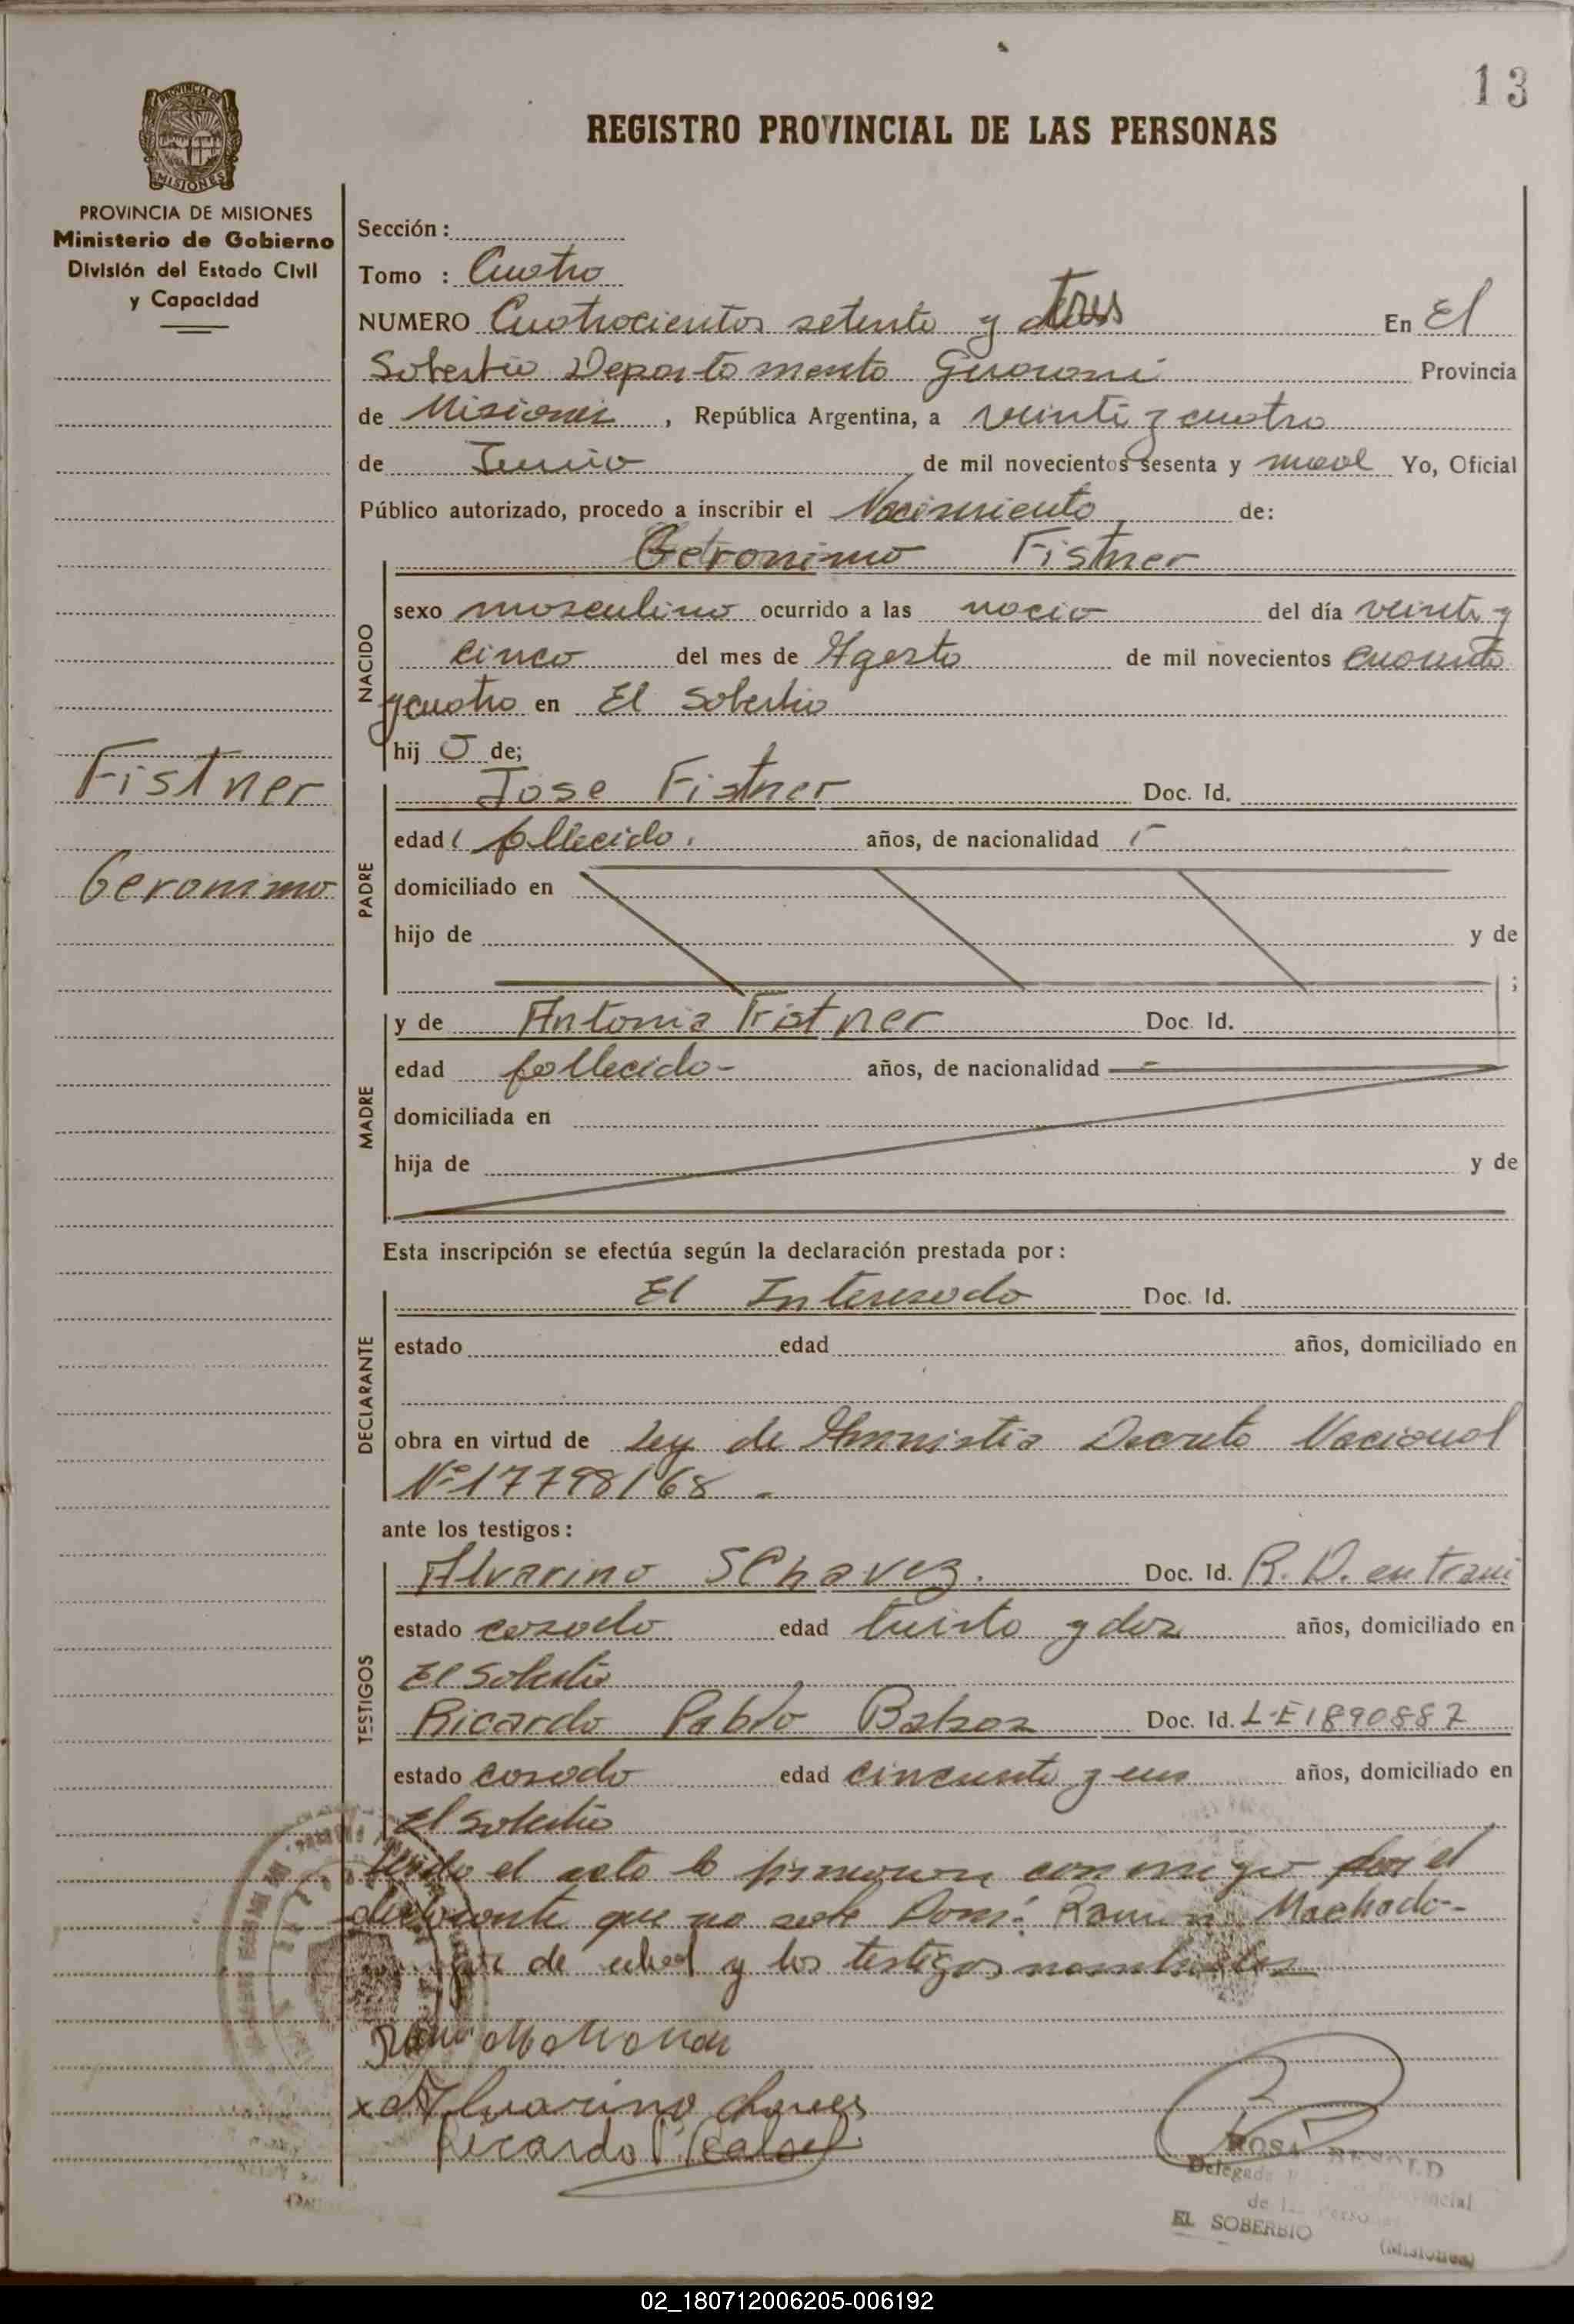 13
REGISTRO PROVINCIAL DE LAS PERSONAS
PROVINCIA DE
MISIONES
PROVINCIA DE MISIONES
Ministerio de Gobierno
División del Estado Civil
y Capacidad
Sección :
Tomo : Cuatro
NUMERO Cuatrocientos setenta y tres En El
Soberbio Departamento Guarani Provincia
de Misiones , República Argentina, a veinti y cuatro
de Junio de mil novecientos sesenta y nueve Yo, Oficial
Público autorizado, procedo a inscribir el Nacimiento de:
Geronimo Fistner
NACIDO
sexo masculino ocurrido a las nacio del día veinte y
cinco del mes de Agosto de mil novecientos cuarenta
y cuatro en El Soberbio
hij o de;
Fistner
Geronimo
PADRE
Jose Fistner Doc. Id.
edad fallecido. años, de nacionalidad
domiciliado en
hijo de y de
;
MADRE
y de Antonia Fistner Doc. Id.
edad fallecida - años, de nacionalidad -
domiciliada en
hija de y de
Esta inscripción se efectúa según la declaración prestada por :
DECLARANTE
El Interesado Doc. Id.
estado edad años, domiciliado en
obra en virtud de Ley de Amnistia Decreto Nacional
Nº 17798/68 -
ante los testigos :
TESTIGOS
Alvarino SChavez. Doc. Id. R. D. en Trami
estado casado edad treinta y dos años, domiciliado en
El Soberbio
Ricardo Pablo Balzaz Doc. Id. L-E 1890887
estado casado edad cincuenta y un años, domiciliado en
El Soberbio
Leido el acto lo firmaron conmigo por el
declarante que no sabe Don: Ramon Machado-
de edad y los testigos nombrados
Alvarino Chaves
Ricardo P. Balsaz
ROSA
Delegada Provincial
de las Personas
EL SOBERBIO
(Misiones)
02_180712006205-006192